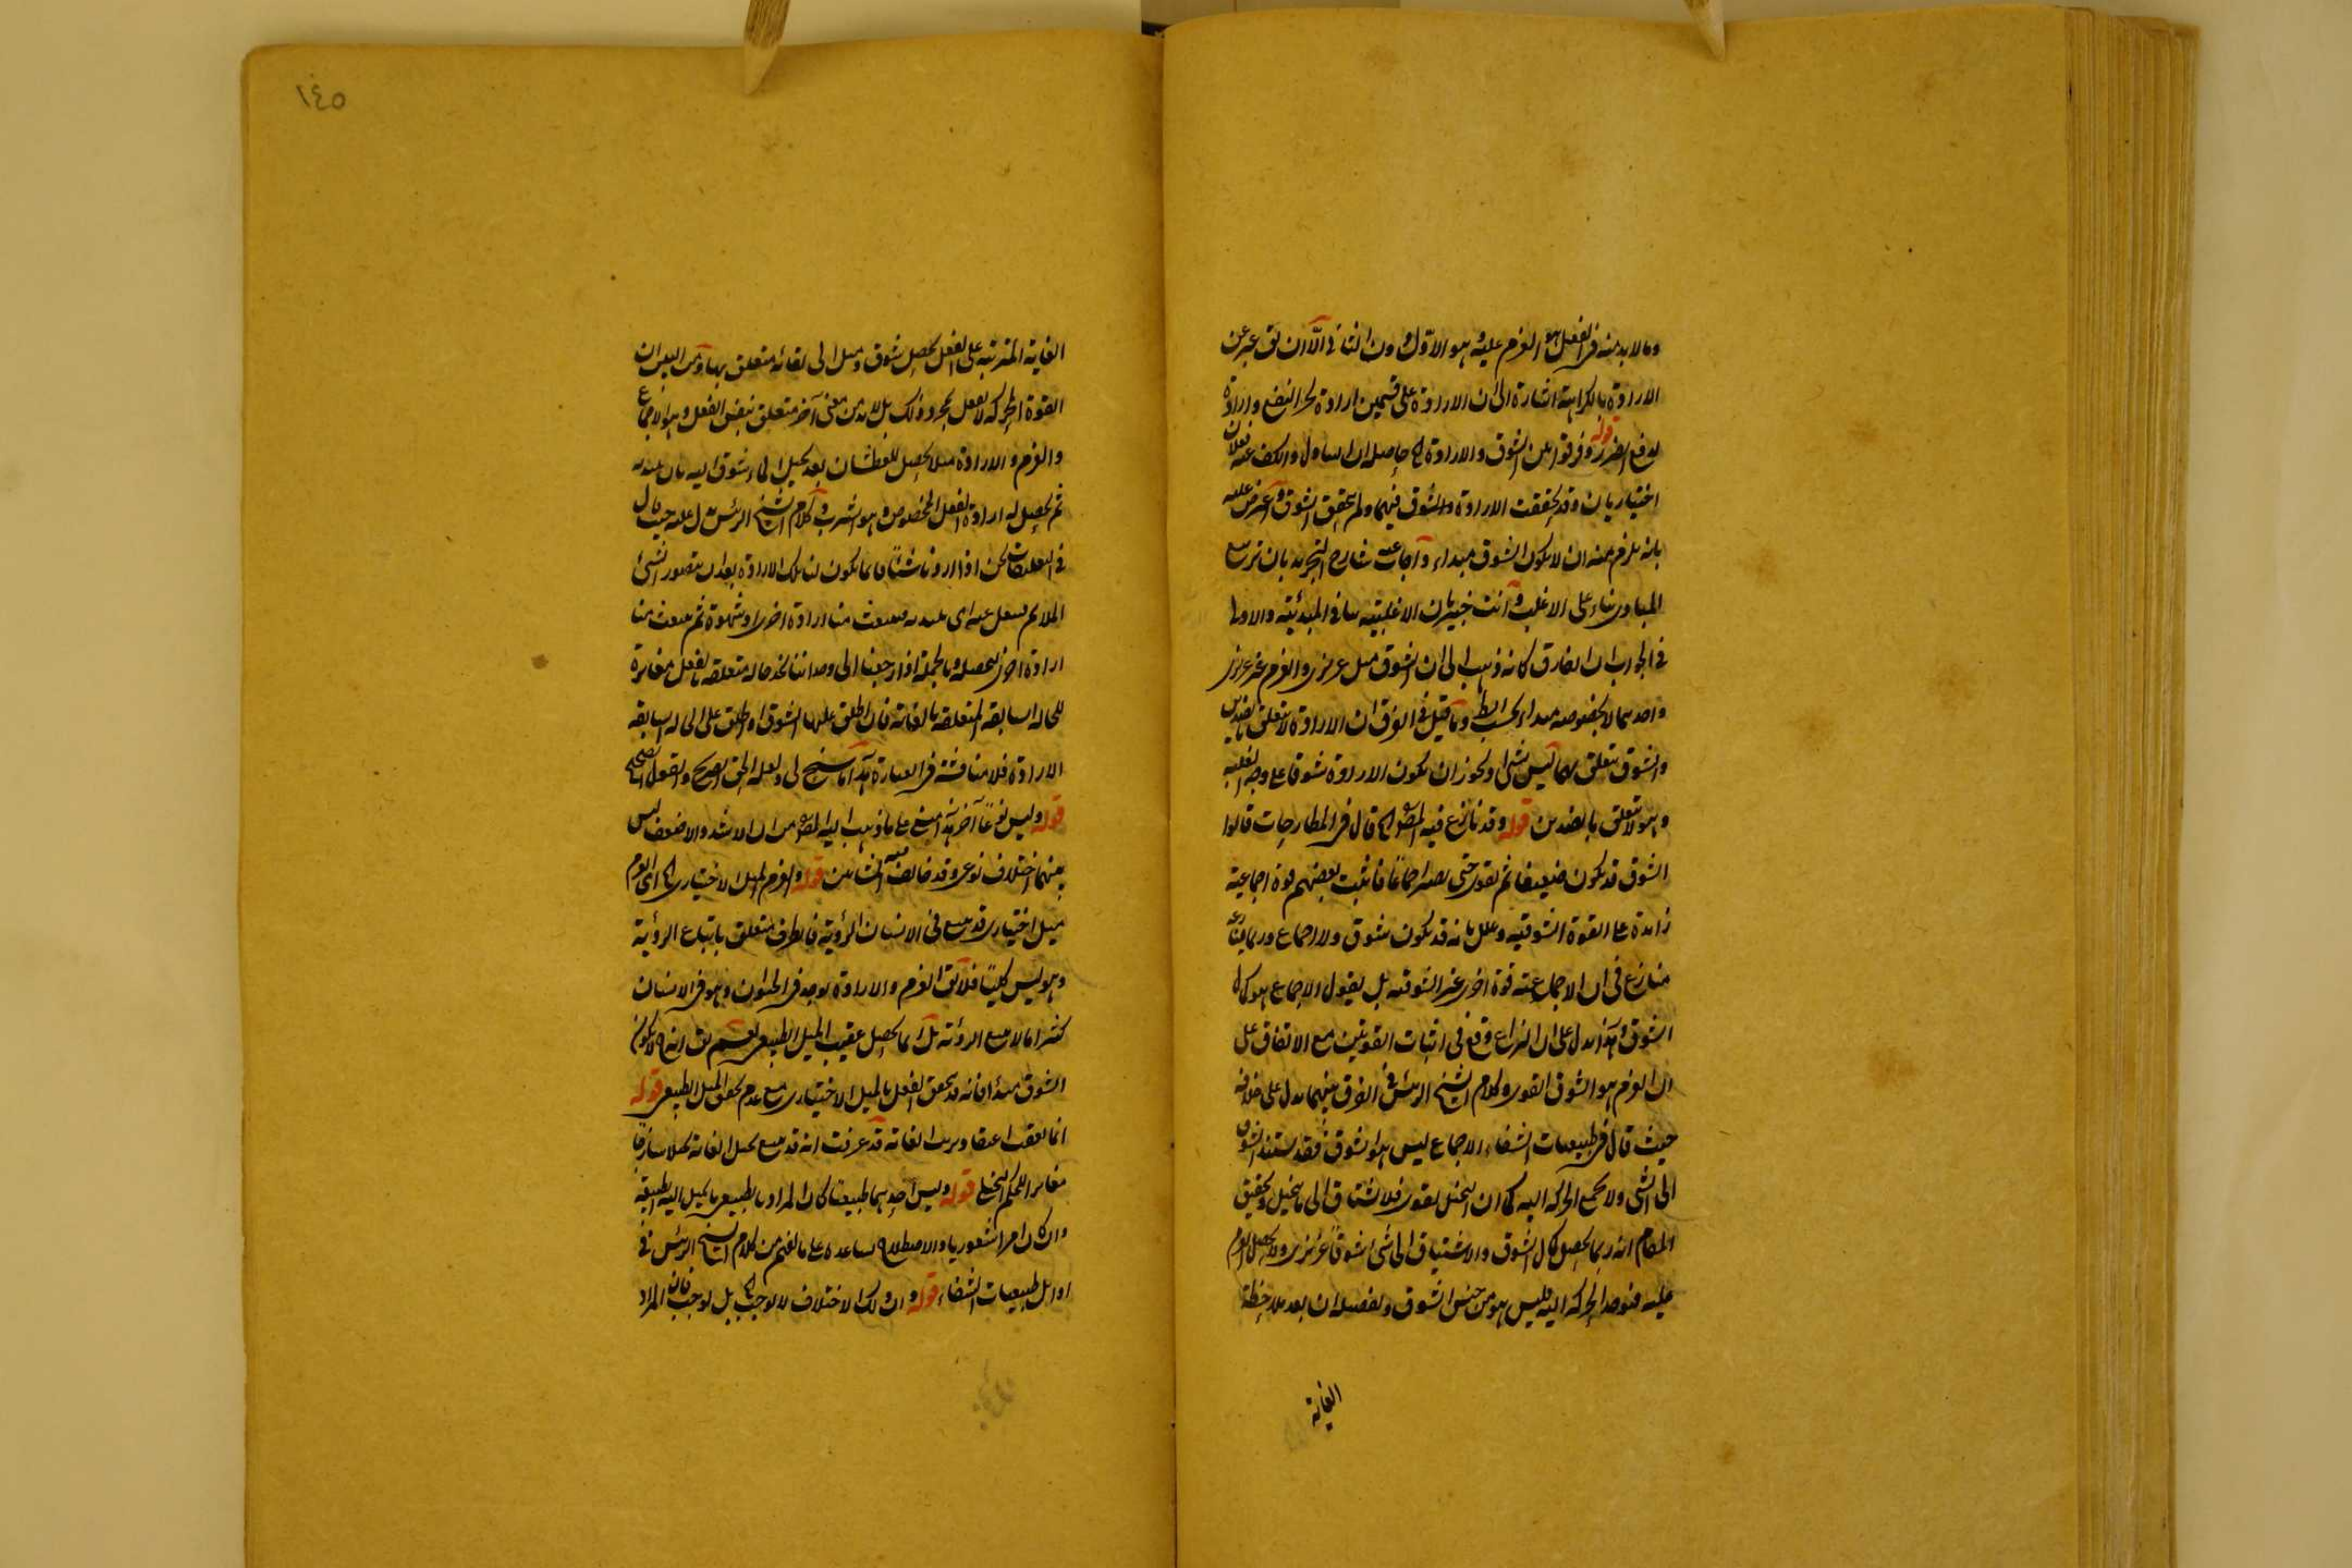 وما لا بد منه في الفعل هو العزم عليه وهو الاول دون الثاني الا ان يق عبر عن
الارادة بالكراهة اشارة الى ان الارادة على قسمين ارادة لجر النفع وارادة
لدفع الضرر قوله وفرقوا بين الشوق والارادة الخ حاصله ان التناول والكف عنه فعلان
اختياريان وقد تحققت الارادة والشوق فيهما ولم يتحقق الشوق واعترض عليه
بانه يلزم منه ان لا يكون الشوق مبداء واجاب عنه شارح التجريد بان
المبادي بناء على الاغلب وانت خبير بان الاغلبية ينافي المبدئية والاولى
في الجواب ان الفارق كانه ذهب الى ان الشوق ميل غريزي والعزم غير غريزي
واحدهما لا بخصوصه مبداء بحسب الظ وما قيل في الفرق ان الارادة لا تتعلق بالضدين
والشوق يتعلق بهما ليس بشئ اذ يجوز ان يكون الارادة شوقا على وجه الغلبة
وهو لا يتعلق بالضدين قوله وقد نازع فيه المص الخ قال في المطارحات قالوا
الشوق قد يكون ضعيفا ثم يقوى حتى يصير اجماعا فاثبت بعضهم قوة اجماعية
زائدة على القوة الشوقية وعلل بانه قد يكون شوق ولا اجماع وربما
منازع في ان الاجماعية قوة اخرى غير الشوقية بل يقول الاجماع هو كمال
الشوق وهذا يدل على ان النزاع وقع في اثبات القوتين مع الاتفاق على
ان العزم هو الشوق القوي وكلام الشيخ الرئيس في الفرق بينهما يدل على خلافه
حيث قال في طبيعيات الشفاء الاجماع ليس هو الشوق فقد يشتد الشوق
الى الشئ ولا يجمع الحركة اليه كما ان التخيل يقوى فلا يشتاق الى ما تخيل وتحقيق
المقام انه ربما يحصل كمال الشوق والاشتياق الى شئ شوقا غريزيا ولا يحصل العزم
عليه فيوجد الحركة اليه فليس هو من جنس الشوق وتفصيله ان بعد ملاحظة
الغاية
١٤٥
الغاية المترتبة على الفعل يحصل شوق وميل الى لقائه متعلق بها ومن البين ان
القوة المحركة لا تفعل بمجرد ذلك بل لا بد من معنى آخر متعلق بنفس الفعل وهو الاجماع
والعزم والارادة مثلا يحصل للعطشان بعد تخيل الماء شوق اليه بان
ثم يحصل له ارادة الفعل المخصوص وهو الشرب وكلام الشيخ الرئيس يدل عليه حيث قال
في التعليقات نحن اذا اردنا شيئا فانما يكون لنا تلك الارادة بعد ان يتصور الشئ
الملائم فينبعث منا ارادة اخرى او شهوة ثم ينبعث منا
ارادة اخرى لتحصيله وبالجملة اذا رجعنا الى وجداننا نجد حالة متعلقة بالفعل مغايرة
للحالة السابقة المتعلقة بالغاية فان اطلق عليها الشوق او اطلق على الحالة السابقة
الارادة فلا مناقشة في العبارة هذا ما سنح لي ولعله الحق الصريح والقول الصحيح
قوله وليس نوعا آخر هذا مبني على ما ذهب اليه المص من ان الاشد والاضعف ليس
بينهما اختلاف نوعي وقد خالف فيه المشائين قوله والعزم الميل الاختياري الخ اي العزم
ميل اختياري قد ينبع في الانسان الرؤية فالطرف متعلق باتباع الرؤية
وهو ليس كليا فلا يق العزم والارادة يوجد في الحيوان وهو في الانسان
كثيرا ما لا يتبع الرؤية بل انما يحصل عقيب الميل الطبيعي نعم يق انه ح لا يكون
الشوق مبدأ فانه قد يتحقق الفعل بالميل الاختياري مع عدم تحقق الميل الطبيعي قوله
انما يعقب اعتقاد ترتب الغاية قد عرفت انه قد يتبع تخيل الغاية تخيلا ساذجا
مغايرا للحكم التخيلي قوله وليس احدهما طبيعيا كان المراد بالطبيعي ما يميل اليه الطبيعة
وان كان امرا شعوريا والاصطلاح يساعده على ما يفهم من كلام الشيخ الرئيس في
اوائل طبيعيات الشفاء قوله وان ذلك الاختلاف لا يوجب الخ بل يوجب فان المراد